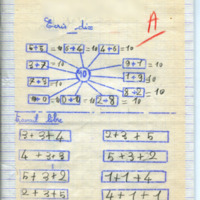 Ecris dix
A
5+5 = 10 6+4 = 10 4+6 = 10
3+7 = 10
9+1 = 10
10
7+3 = 10
1+9 = 10
8+2 = 10
= 10 = 10 2+8 = 10
3+3+4
2+3+5
4+3+3
5+3+2
5+3+2
1+1+4
2+3+5
4+1+1